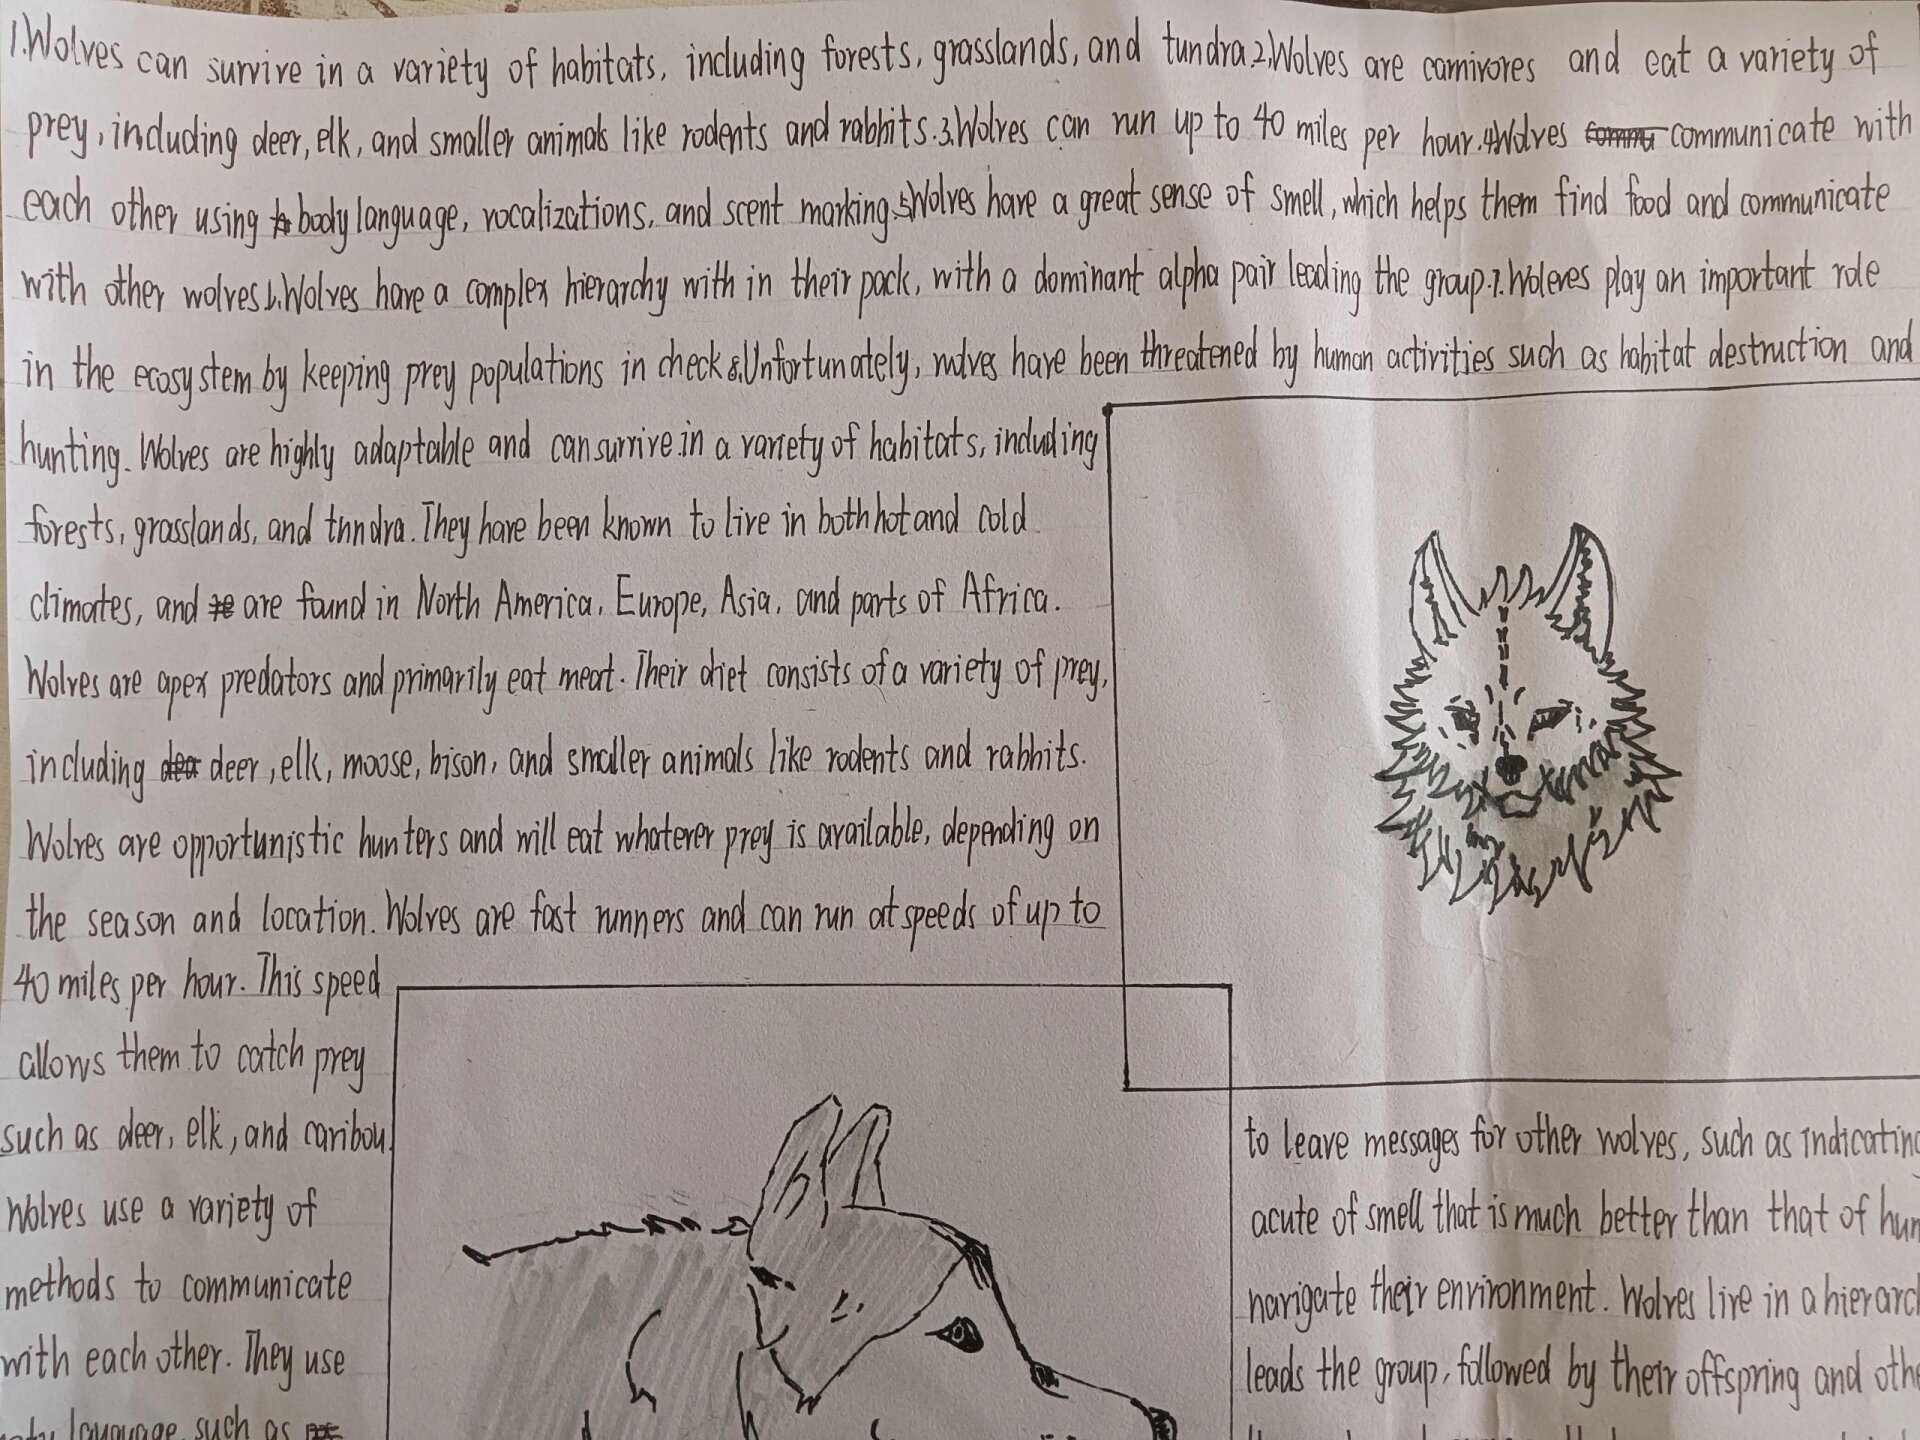 1.Wolves can survive in a variety of habitats, including forests, grasslands, and tundra.2.Wolves are carnivores and eat a variety of
prey, including deer, elk, and smaller animals like rodents and rabbits.3.Wolves can run up to 40 miles per hour.4Wolves communicate with
each other using body language, vocalizations, and scent marking.5Wolves have a great sense of smell, which helps them find food and communicate
with other wolves.6.Wolves have a complex hierarchy with in their pack, with a dominant alpha pair leading the group.7.Woleves play an important role
in the ecosystem by keeping prey populations in check 8.Unfortunately, wolves have been threatened by human activities such as habitat destruction and
hunting. Wolves are highly adaptable and can survive in a variety of habitats, including
forests, grasslands, and tnndra. They have been known to live in both hot and cold
climates, and are found in North America, Europe, Asia, and parts of Africa.
Wolves are apex predators and primarily eat meat. Their diet consists of a variety of prey,
including deer, elk, moose, bison, and smaller animals like rodents and rabbits.
Wolves are opportunistic hunters and will eat whatever prey is available, depending on
the season and location. Wolves are fast runners and can run at speeds of up to
40 miles per hour. This speed
allows them to catch prey
such as deer, elk, and caribou.
Wolves use a variety of
methods to communicate
with each other. They use
language, such as
to leave messages for other wolves, such as indicating
acute of smell that is much better than that of
navigate their environment. Wolves live in a
leads the group, followed by their offspring and